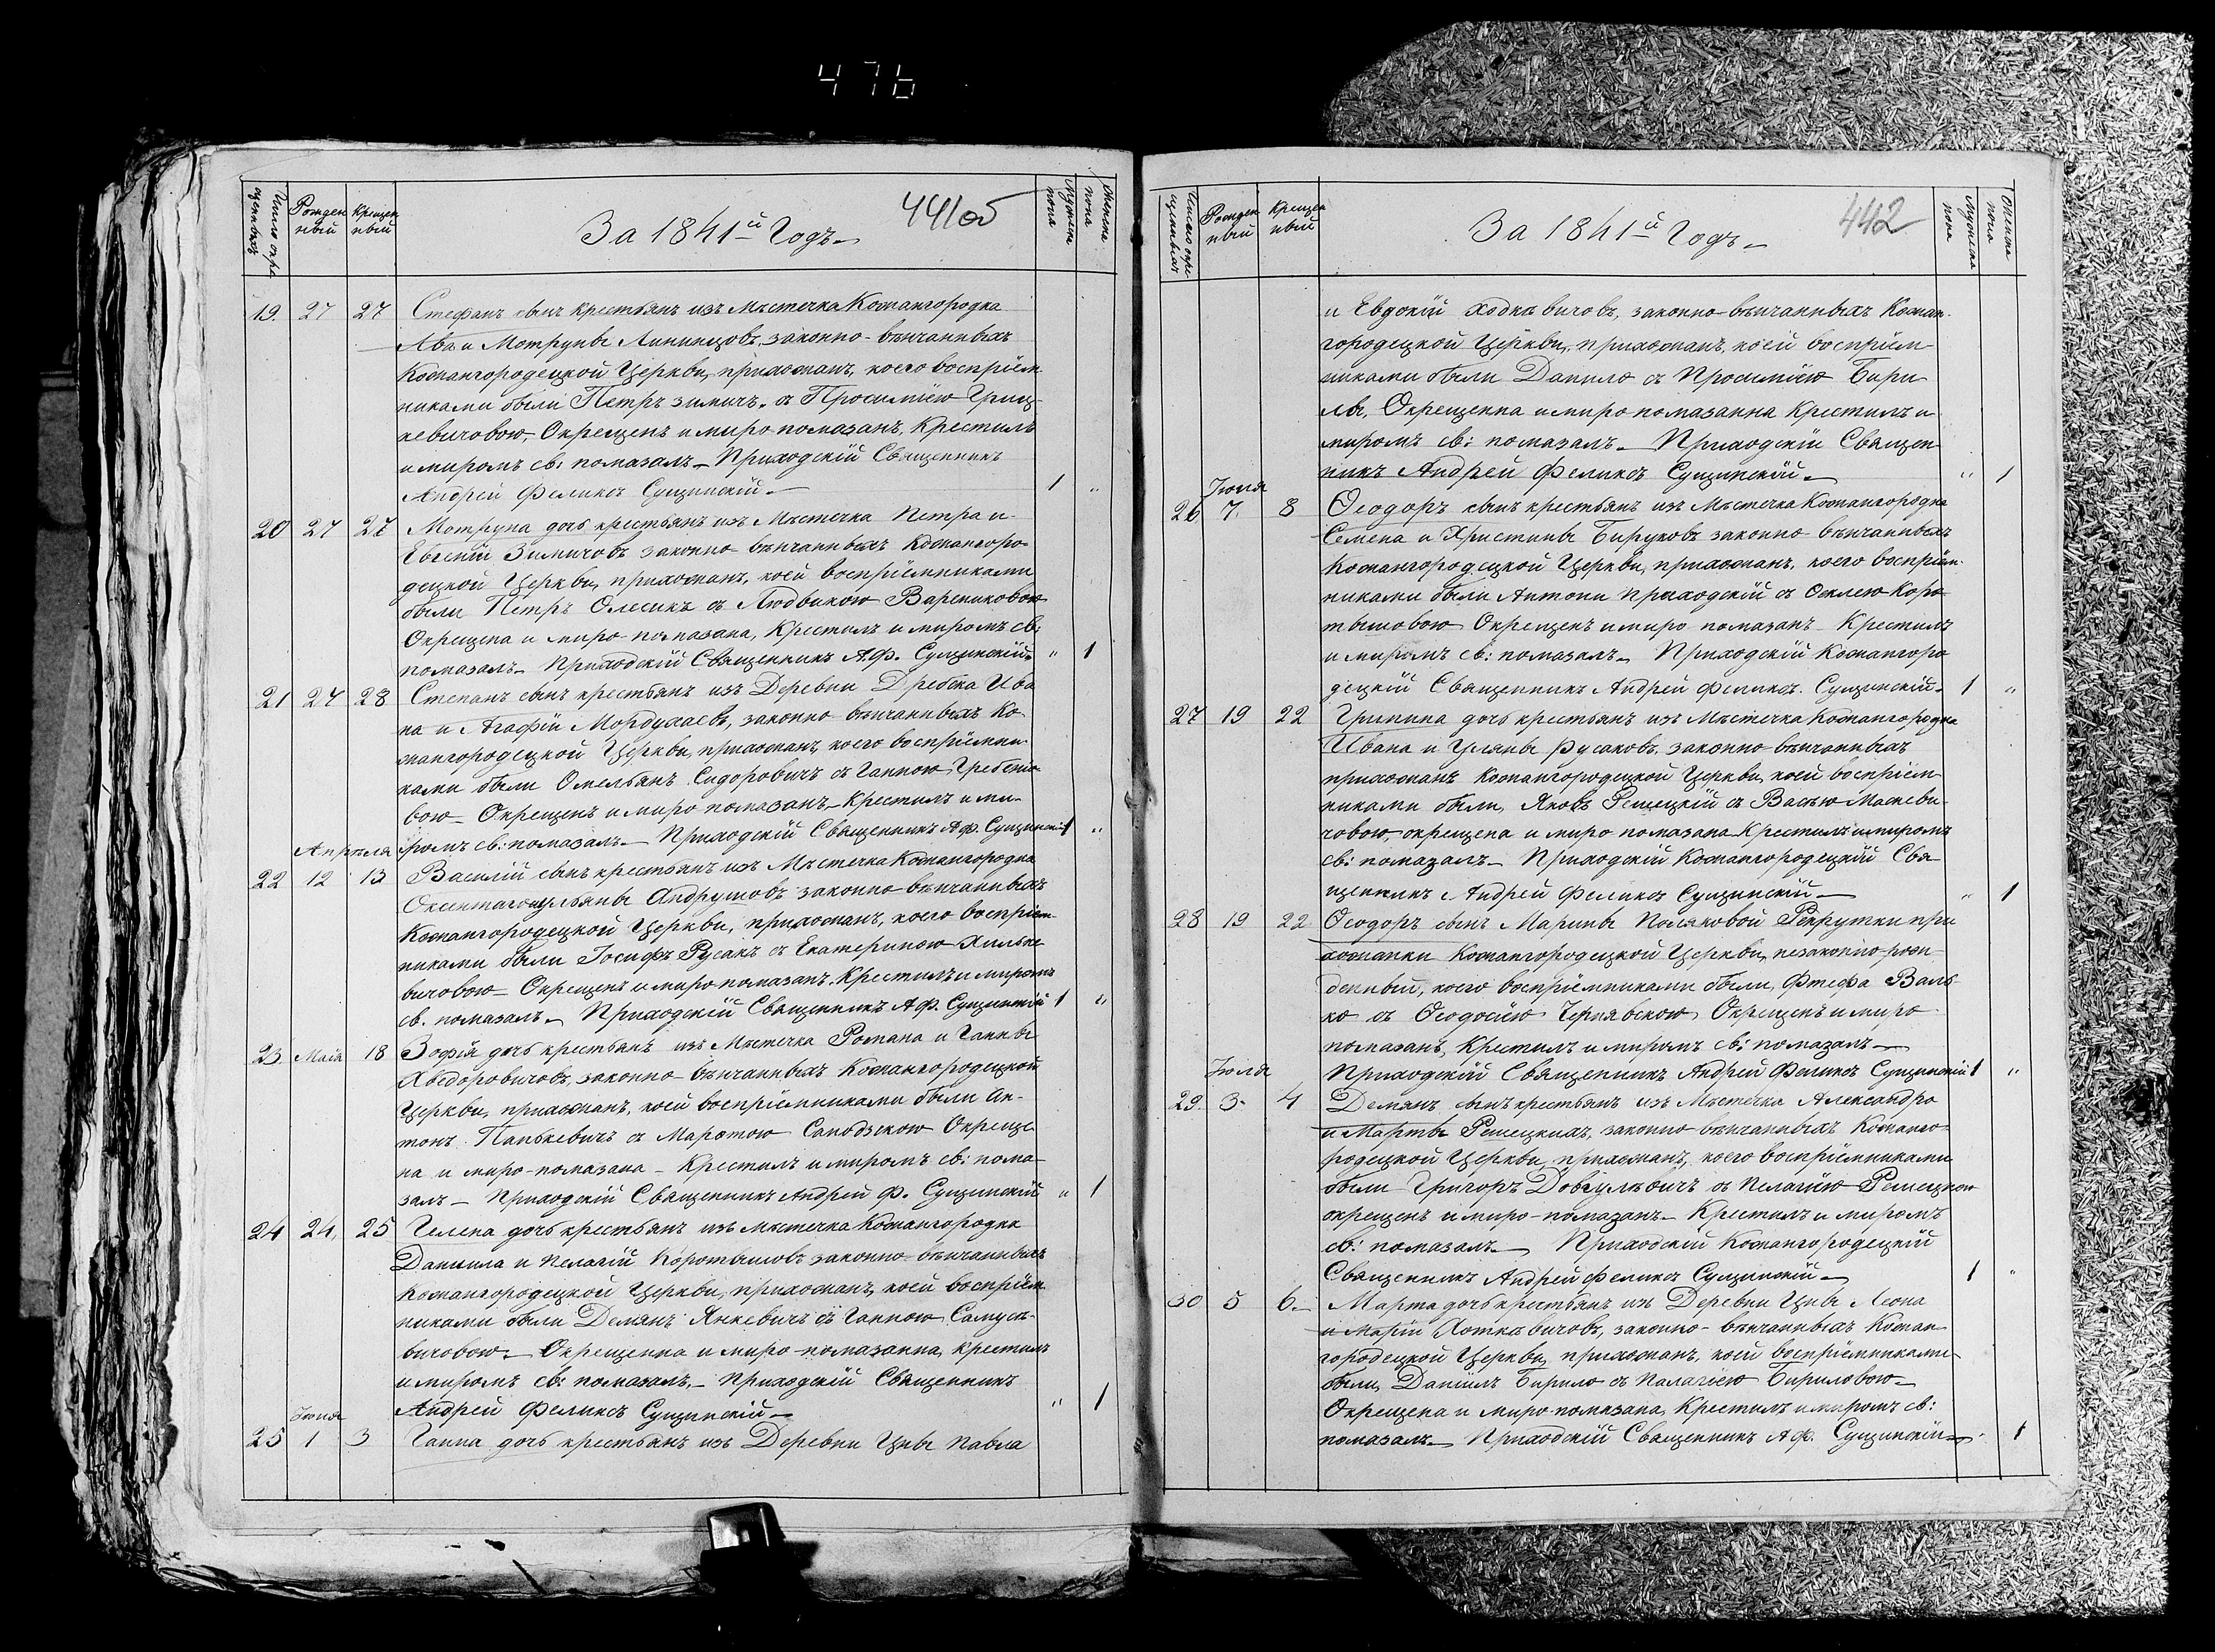 476
Число окре щенныхъ Рожден ный Крещен ный За 1841й Годъ 441об Мужеска пола Женска пола
19. 27 27 Стефанъ сынъ крестьянъ изъ Мѣстечка Кожангородка
Ива и Мотруны законно-вѣнчанныхъ
Кожангородецкой Церкви, прихожанъ, коего воспріем
никами были Петръ Зимичъ съ Просимѣю Гриц
кевичовою, Окрещенъ и миро помазанъ, Крестилъ
и миромъ св: помазалъ Приходскій Священникъ
Андрей Феликсъ Сущинскій 1 "
20 27 27 Мотруна дочь крестьянъ изъ Мѣстечка Петра и
Евгеніи Зимичовъ законно вѣнчанныхъ Кожангоро
децкой Церкви, прихожанъ, коей воспріемниками
были Петръ Олесикъ съ Людвикою Варениковою
Окрещена и миро помазана, Крестилъ и миромъ св:
помазалъ Приходскій Священникъ А.Ф. Сущинскій " 1
21 27 28 Степанъ сынъ крестьянъ изъ Деревни Дребска Ива
на и Агафіи Мордухаевъ, законно вѣнчанныхъ Ко
жангородецкой Церкви, прихожанъ, коего воспріемни
ками были Омельянъ Сидоровичъ съ Ганною Гребень
вою Окрещенъ и миро помазанъ Крестилъ и ми
Апрѣля ромъ св: помазалъ Приходскій Священникъ А.Ф. Сущинскій 1 "
22 12 13 Василій сынъ крестьянъ изъ Мѣстечка Кожангородка
Андрушовъ законно вѣнчанныхъ
Кожангородецкой Церкви, прихожанъ, коего воспріем
никами были Іосифъ Русакъ съ Екатериною Хильке
вичовою Окрещенъ и миро помазанъ, Крестилъ и миромъ
св. помазалъ Приходскій Священникъ А.Ф. Сущинскій 1 "
23 Мая 18 Зофія дочь крестьянъ изъ Мѣстечка Романа и Ганны
Хведоровичовъ, законно вѣнчанныхъ Кожангородецкой
Церкви, прихожанъ, коей воспріемниками были Ан
тонъ Панькевичъ съ Мартою Окреще
на и миро-помазана Крестилъ и миромъ св: пома
залъ Приходскій Священникъ Андрей Ф. Сущинскій " 1
24 24 25 Гелена дочь крестьянъ изъ мѣстечка Кожангородка
Даниила и Пелагіи Коротышовъ законно вѣнчанныхъ
Кожангородецкой Церкви, прихожанъ, коей воспріем
никами были Демянъ Янкевичъ съ Ганною Самусе
вичовою Окрещенна и миро-помазанна, крестилъ
и миромъ св: помазалъ, Приходскій Священникъ
Андрей Феликсъ Сущинскій " 1
Іюня
25 1 3 Ганна дочь крестьянъ изъ Деревни Цны Павла
Число окре щенныхъ Рожден ный Крещен ный За 1841й Годъ 442 Мужеска пола Женска пола
и Евдокіи Ходкѣвичовъ, законно-вѣнчанныхъ Кожан
городецкой Церкви, прихожанъ, коей воспріем
никами были Данило съ Просимѣю Бири
лы, Окрещенна и миро помазанна Крестилъ и
миромъ св: помазалъ Приходскій Священ
никъ Андрей Феликсъ Сущинскій " 1
Іюня
26 7 8 Ѳеодоръ сынъ крестьянъ изъ Мѣстечка Кожангородка
Семена и Христины Бируковъ законно вѣнчанныхъ
Кожангородецкой Церкви, прихожанъ, коего воспріем
никами были Антони Приходскій съ Феклею Коро
тышовою Окрещенъ и миро помазанъ Крестилъ
и миромъ св: помазалъ Приходскій Кожангоро
децкій Священникъ Андрей Феликсъ Сущинскій 1 "
27 19 22 Грипина дочь крестьянъ изъ Мѣстечка Кожангородка
Ивана и Уляны Русаковъ, законно вѣнчанныхъ
прихожанъ Кожангородецкой Церкви, коей воспріем
никами были, Яковъ Решецкій съ Васею Маскеви
човою, окрещена и миро помазана Крестилъ и миромъ
св: помазалъ Приходскій Кожангородецкій Свя
щенникъ Андрей Феликсъ Сущинскій " 1
28 19 22 Ѳеодоръ сынъ Марины Поляковой Рекрутки при
хожанки Кожангородецкой Церкви, незаконно рож
денный, коего воспріемниками были, Валь
ко съ Ѳеодосіею Чернявскою Окрещенъ и миро
помазанъ, Крестилъ и миромъ св: помазалъ
Іюля Приходскій Священникъ Андрей Феликсъ Сущинскій 1 "
29. 3. 4 Демянъ сынъ крестьянъ изъ Мѣстечка Александра
и Марты Решецкихъ, законно вѣнчанныхъ Кожанго
родецкой Церкви прихожанъ, коего воспріемниками
были Григоръ Довгулевичъ съ Пелагіею Решецкою
окрещенъ и миро-помазанъ Крестилъ и миромъ
св: помазалъ Приходскій Кожангородецкій
Священникъ Андрей Феликсъ Сущинскій 1 "
30 5 6. Марта дочь крестьянъ изъ Деревни Цны Леона
и Маріи Хоткѣвичовъ, законно-вѣнчанныхъ Кожан
городецкой Церкви прихожанъ, коей воспріемниками
были, Даніилъ Бирило съ Палагіею Бириловою
Окрещена и миро помазана, Крестилъ и миромъ св:
помазалъ Приходскій Священникъ А.Ф. Сущинскій " 1